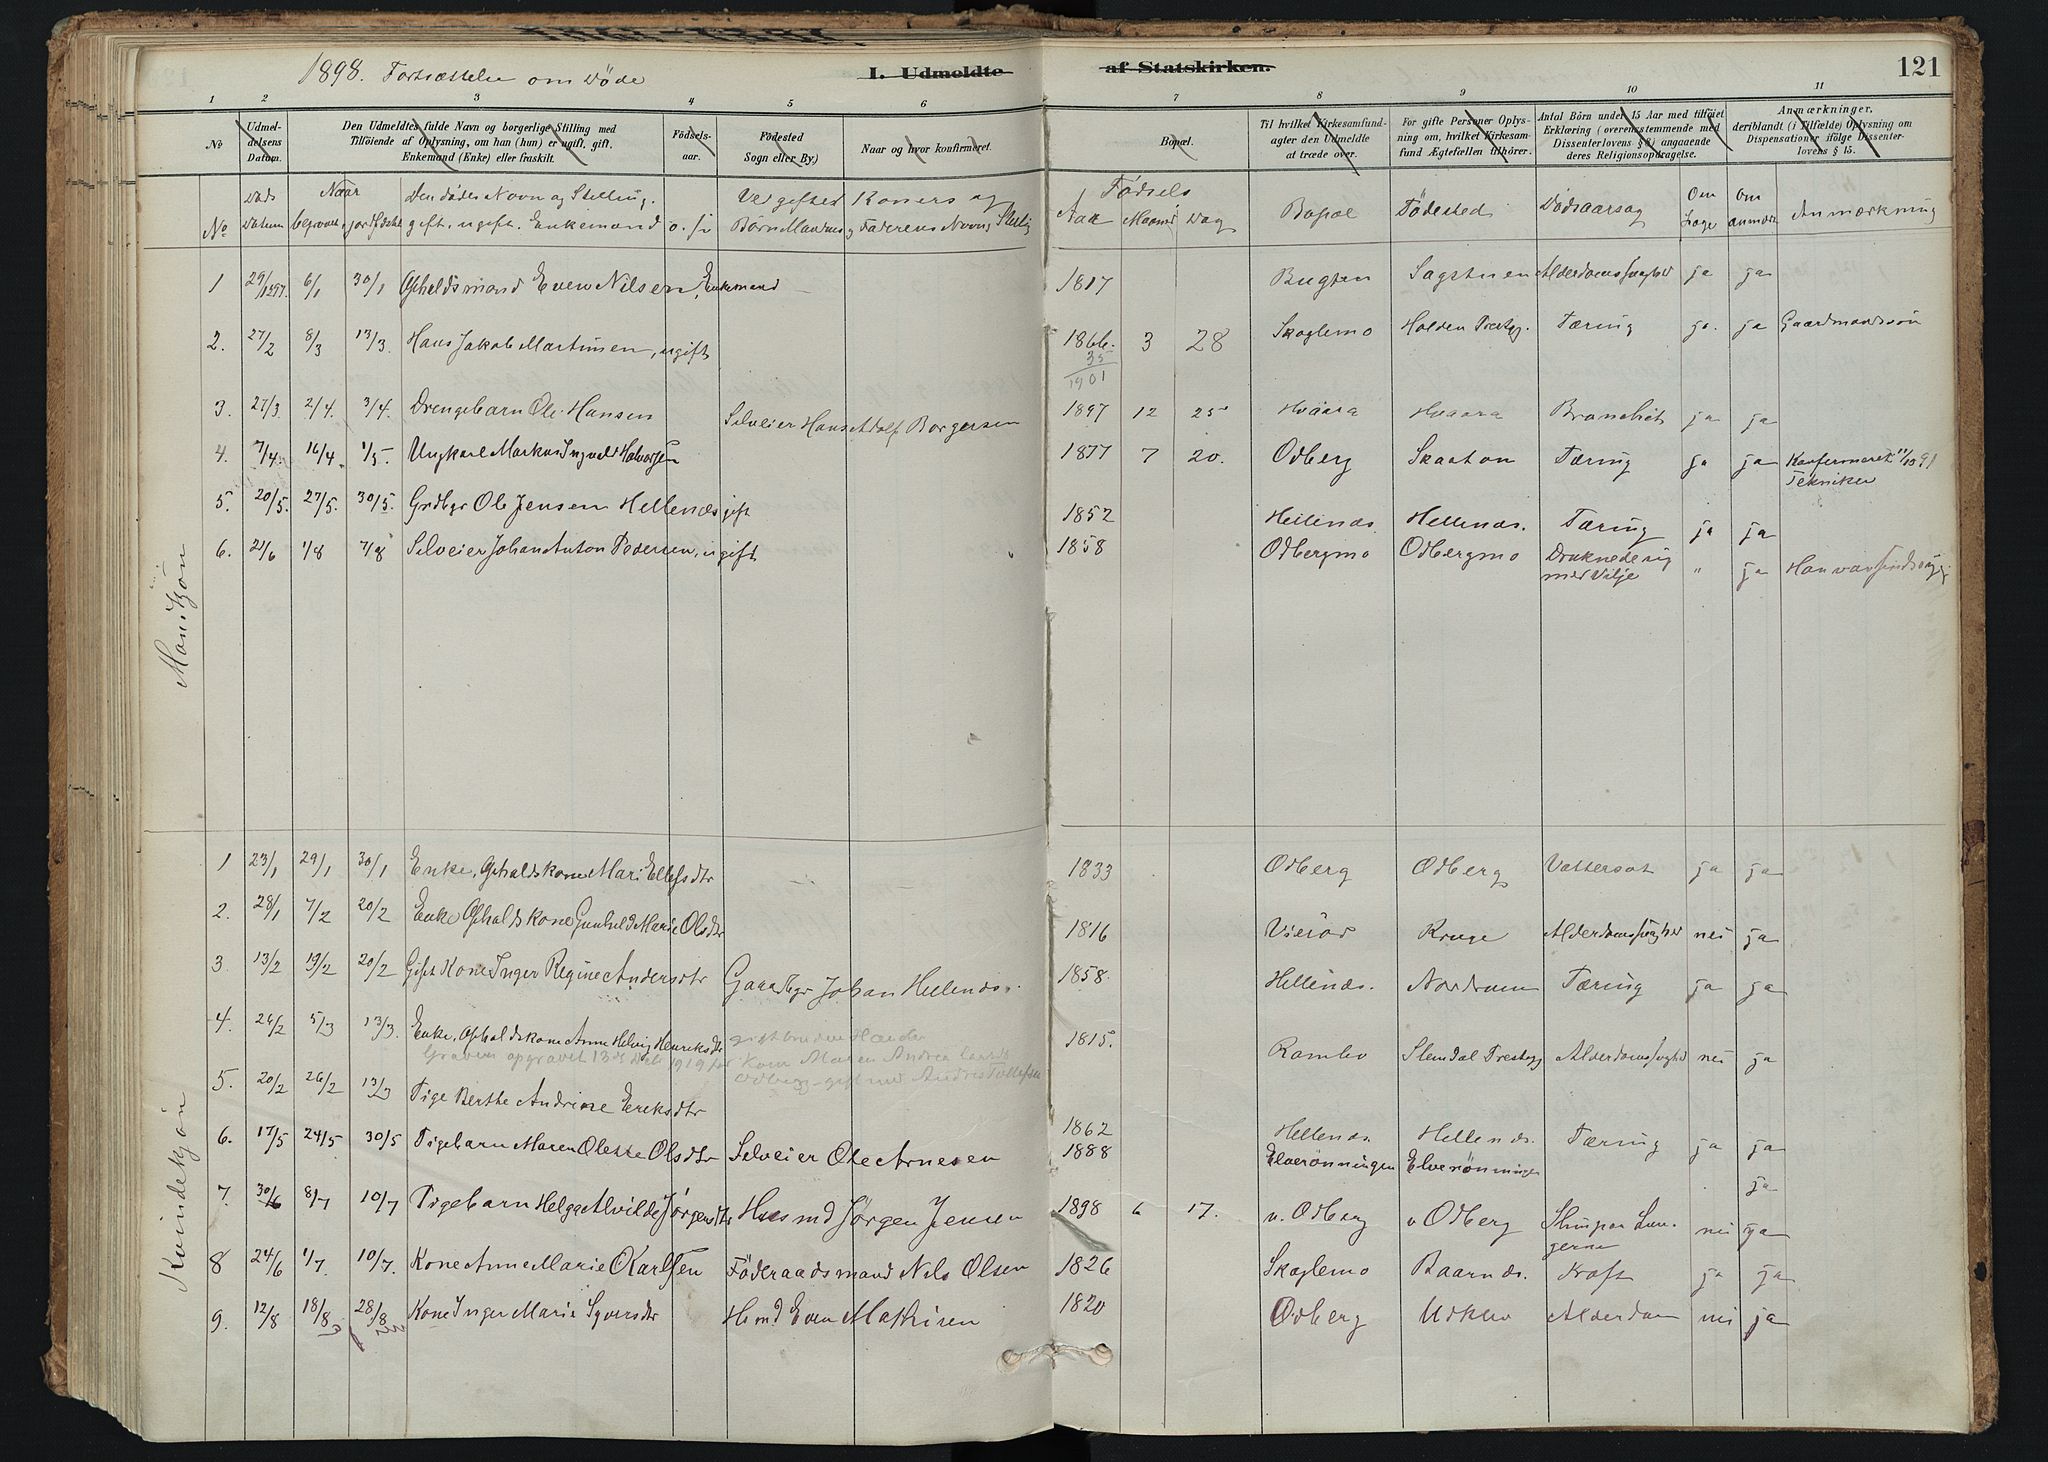 1898. Fortsættelse om Døde
I. Udmeldte af Statskirken.
121
1 2 3 4 5 6 7 8 9 10 11
№
Udmeldelsens Datum.
Den Udmeldtes fulde Navn og borgerlige Stilling med
Tilföiende af Oplysning, om han (hun) er ugift, gift,
Enkemand (Enke) eller fraskilt.
Födselsaar.
Födested
Sogn eller By)
Naar og hvor konfirmeret.
Bopæl.
Til hvilket Kirkesamfund
agter den Udmeldte
at træde over.
For gifte Personer Oplysning om, hvilket Kirkesamfund Ægtefællen tilhörer.
Antal Börn under 15 Aar med tilföiet
Erklæring (overensstemmende med
Dissenterlovens § 6) angaaende
deres Religionsopdragelse.
Anmærkninger,
deriblandt (i Tilfælde) Oplysning om
Dispensationer ifölge Dissenterlovens § 15.
No Døds Datum Naar begravet, jordfæstet
den dødes Navn og Stilling. gift, ugift, Enkemand o. s. v.
Ved gifted Koners og Børn Mandens og Faderens Navn, Stillig
Fødsels Aar Maaned Dag
Bopæl Födested Dödsaarsag Om Læge Om anmeldt Anmærkning
Mandkjön
1 29/12 97. 6/1 30/1 Opholdsmand Even Nilsen, Enkemand 1817 Bugten Sagstuen Alderdomssvaghed ja ja
2. 27/2 8/3 13/3. Hans Jakob Martinsen, ugift 1866. 3 28 Skoglemo Holden Prestgj. Tæring ja. ja Gaardmandssön
35
1901
3. 27/3 2/4. 3/4. Drengebarn Ole Hansen Selveier Hans Adolf Borgersen 1897 12 25 Hvaara Hvaara Bronchit ja ja
4. 7/4. 16/4. 1/5. Ungkarl Markus Ingvald Halvorsen 1877 7 20. Odberg Skaaton Tæring ja ja Konfirmeret 11/10 91
Tekniker
5. 20/5. 27/5. 30/5. Grdbgr Ole Jensen Hellenæs gift 1852 Hellenæs Hellenæs. Tæring ja ja
6. 21/6 1/8 7/8 Selveier Johan Anton Pedersen, ugift 1858 Odbergmo Odbergmo Druknede sig
med Vilje " ja Han var sindssyg
Kvindekjön
1 23/1 29/1 30/1 Enke, Opholdskone Mari Ellefsdtr 1833 Odberg Odberg Vattersot ja ja
2. 28/1 7/2 20/2 Enke Opholdskone Gunhild Marie Olsdtr 1816 Vierød Kruge Alderdomssvaghed nei ja
3 13/2 19/2 20/2 Gift Kone Inger Regine Andersdtr Gaardbgr Johan Hellenæs. 1858. Hellenæs. Nordrum Tæring ja ja
4. 26/2 5/3 13/3. Enke, Opholdskone Anne Helvig Henriksdtr 1815. Rambo Slemdal Prestegj Alderdomssvaghed nei ja
Graven opgravet 13de 1919 for Kom Maren Andrea
Odberg gift med Andres Tollefsen
5. 20/2 26/2 13/3 Pige Berthe Andrine Eriksdtr 1862 Hellenæs Hellenæs. Tæring ja ja
6. 17/5 24/5 30/5 Pigebarn Maren Olette Olsdtr Selveier Ole Arnesen 1888 Elverönningen Elverönningen ja
7. 30/6 8/7 10/7 Pigebarn Helga Alvilde Jörgensdtr Husmd Jörgen Jensen 1898 6 17. n. Odberg n Odberg Slim paa Lungerne nei ja
8 24/6 1/7. 10/7. Kone Anne Marie Karlsen Föderaadsmand Nils Olsen 1826 Skoglemo Baarnæs. Kræft ja ja
9. 12/8 18/8 28/8 Kone Inger Marie Syversdtr Hsmd Even Mathisen 1820 Odberg Udklev Alderdom nei ja